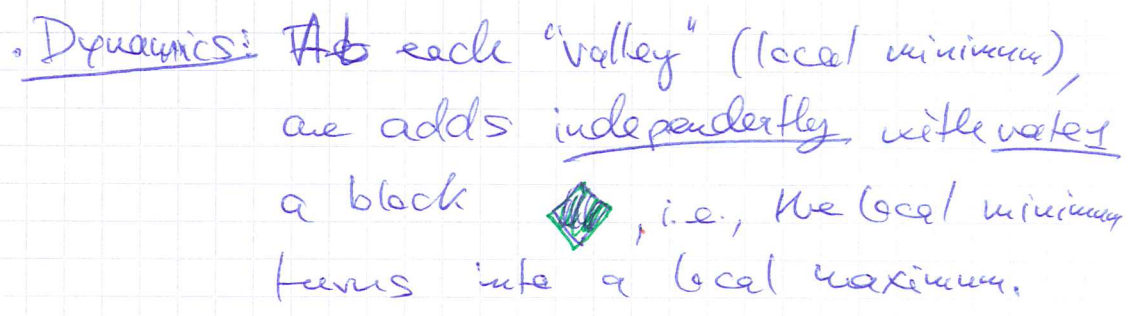 . Dynamics: At each "valley" (local minimum),
one adds independently with rate 1
a block , i.e., the local minimum
turns into a local maximum.